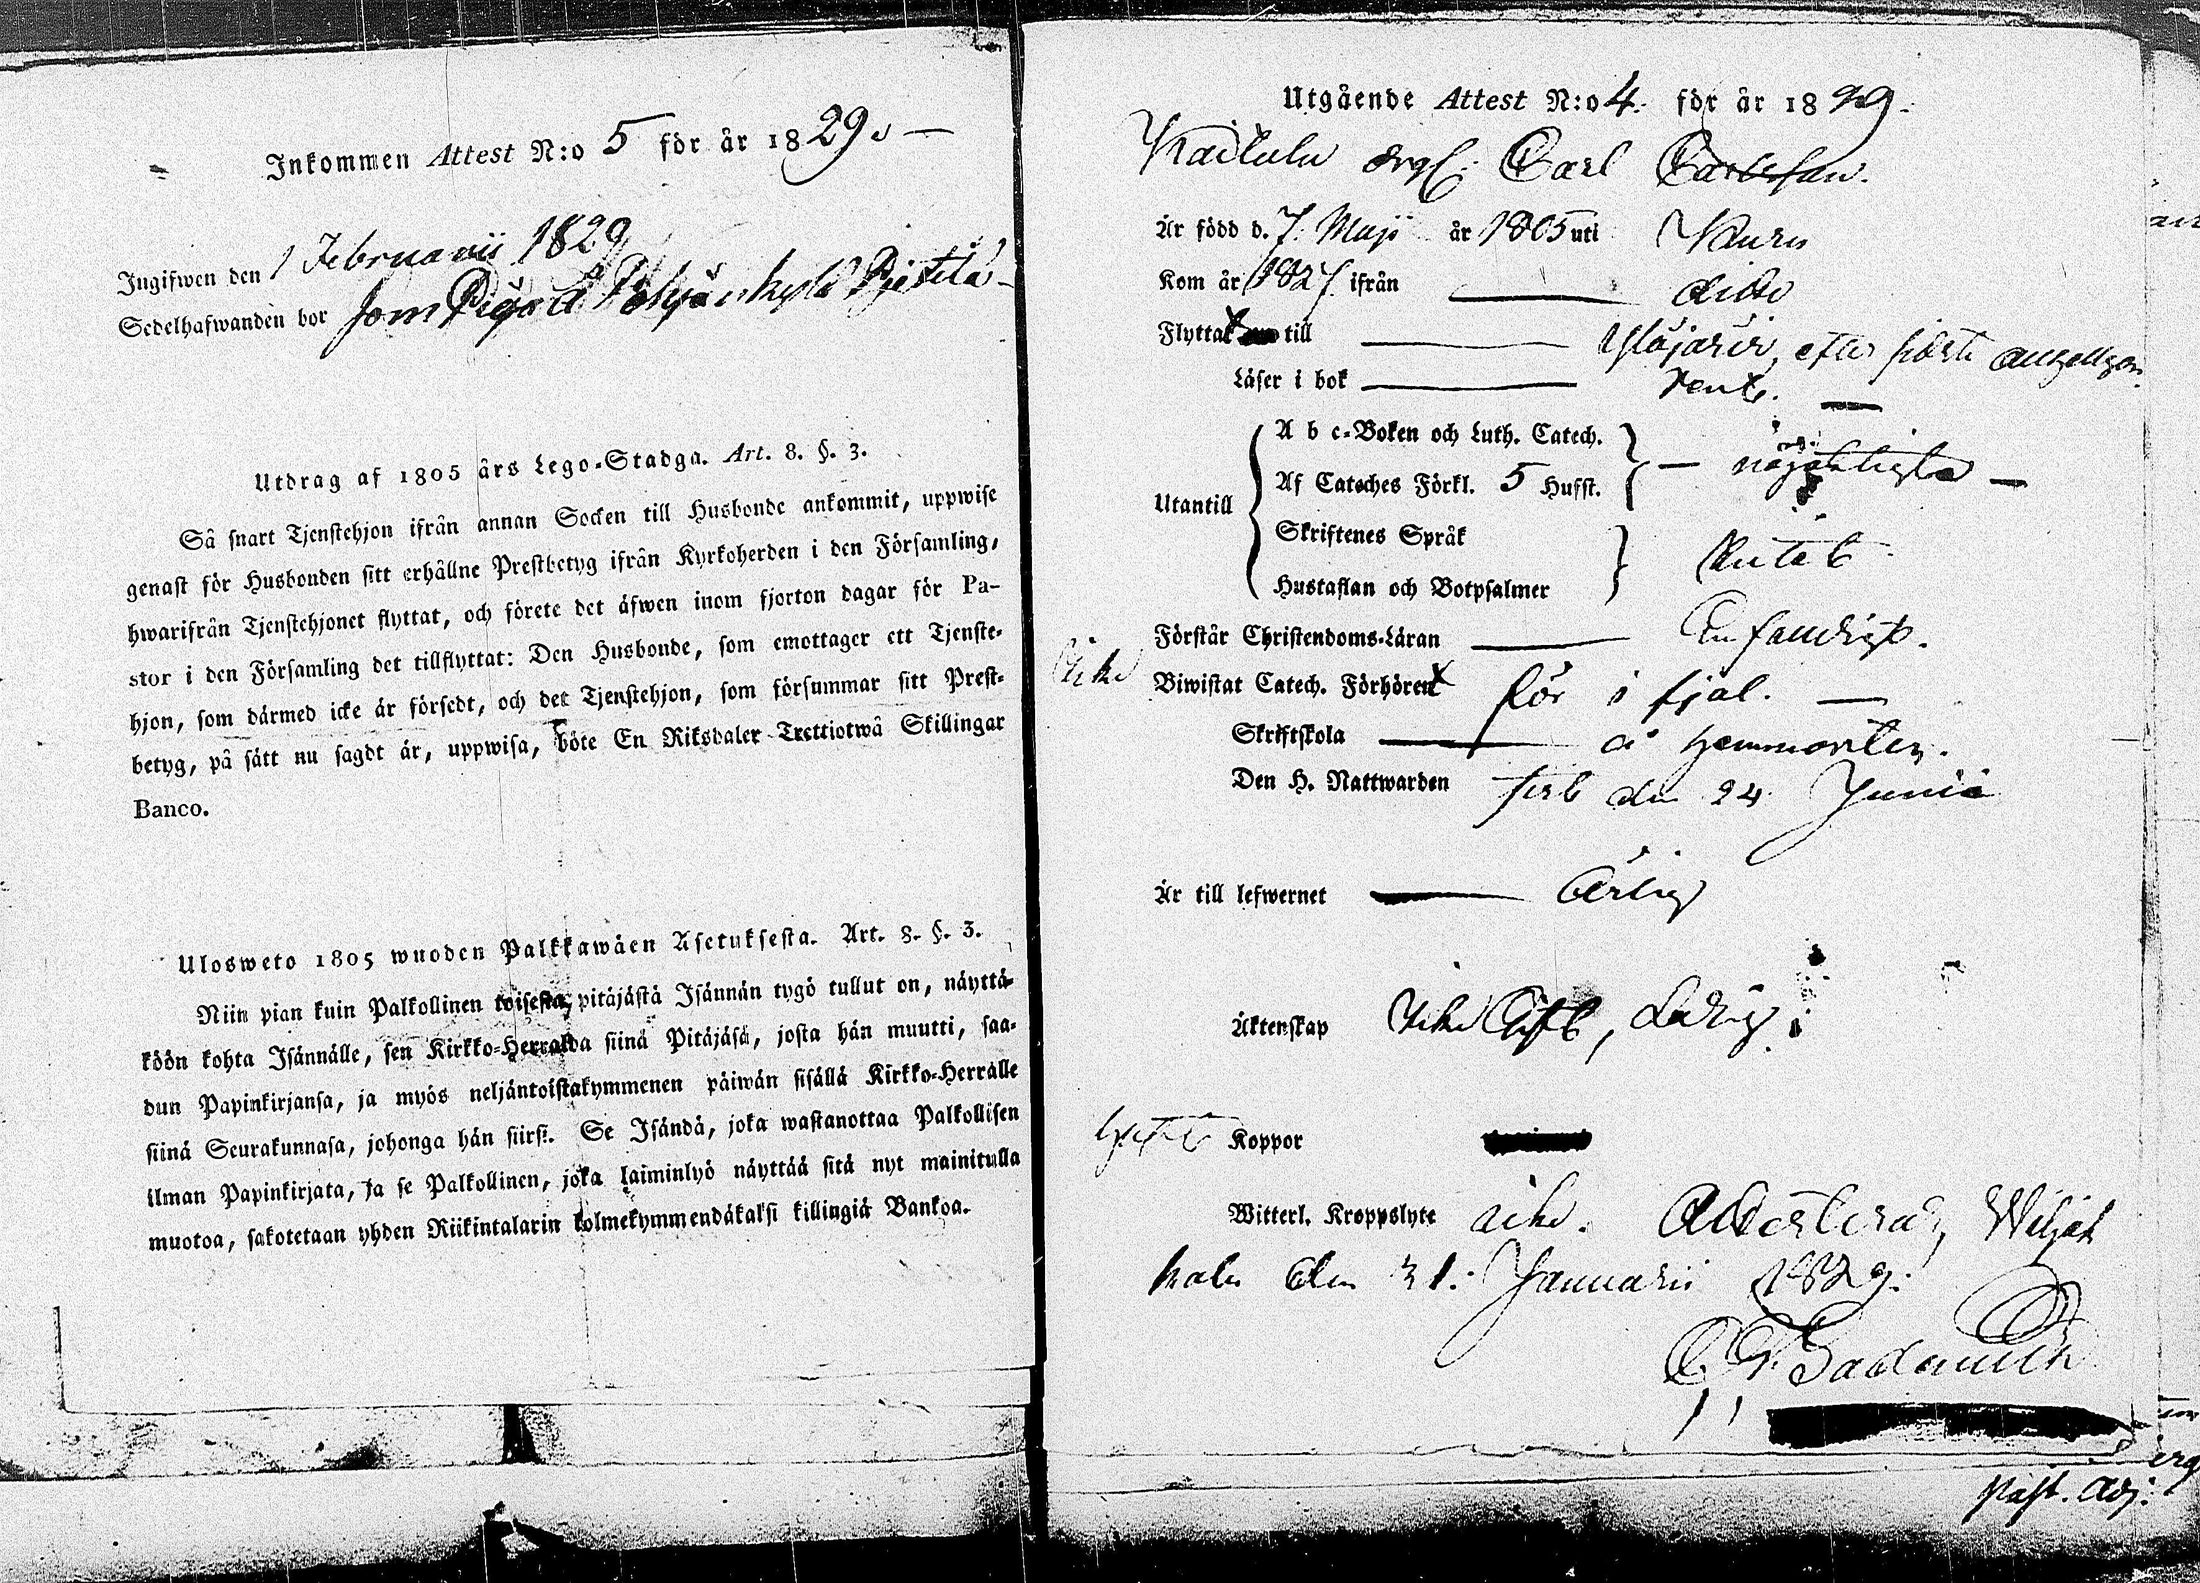 Inkommen Attest N:o 5 för år 1829. —
Ingifwen den 1 Februarii 1829
Sedelhafwanden bor som Piga
Utdrag af 1805 års Lego-Stadga. Art. 8. §. 3.
Så snart Tjenstehjon ifrån annan Socken till Husbonde ankommit, uppwise
genast för Husbonden sitt erhållne Prestbetyg ifrån Kyrkoherden i den Församling,
hwarifrån Tjenstehjonet flyttat, och förete det äfwen inom fjorton dagar för Pa-
stor i den Församling det tillflyttat: Den Husbonde, som emottager ett Tjenste-
hjon, som därmed icke är försedt, och det Tjenstehjon, som försummar sitt Prest-
betyg, på sätt nu sagdt är, uppwisa, böte En Riksdaler Trettiotwå Skillingar
Banco.
Ulosweto 1805 wuoden Palkkawäen Asetuksesta. Art. 8. §. 3.
Niin pian kuin Palkollinen toisesta pitäjästä Isännän tygö tullut on, näyttä-
köön kohta Isännälle, sen Kirkko-Herralda siinä Pitäjäsä, josta hän muutti, saa-
dun Papinkirjansa, ja myös neljäntoistakymmenen päiwän sisällä Kirkko-Herralle
siinä Seurakunnasa, johonga hän siirsi. Se Isändä, joka wastanottaa Palkollisen
ilman Papinkirjata, ja se Palkollinen, joka laiminlyö näyttää sitä nyt mainitulla
muotoa, sakotetaan yhden Riikintalarin kolmekymmendäkaksi killingiä Bankoa.
Utgående Attest N:o 4. för år 1829.
Carl Carlsson.
Är född d. 7. Maji år 1805 uti
Kom år 1827. ifrån — dito
Flyttat till — Ylöjärvi, efter
Läser i bok — rent. —
Utantill
A b c-Boken och Luth. Catech.
Af Catéches Förkl. 5 Hufst.
— nöjaktigt —
Skriftenes Språk
Hustaflan och Botpsalmer
Förstår Christendoms-Läran — Enfaldigt.
Biwistat Catech. Förhören för i fjol. —
Skriftskola — å hemorten.
Den H. Nattwarden sist den 24 Junii
Är till lefwernet — Ärlig
Äktenskap Icke Gift, Ledig
Haft Koppor
Witterl. Kroppslyte icke. Attesterar,
den 31. Januarii 1829.
Past. Adj: